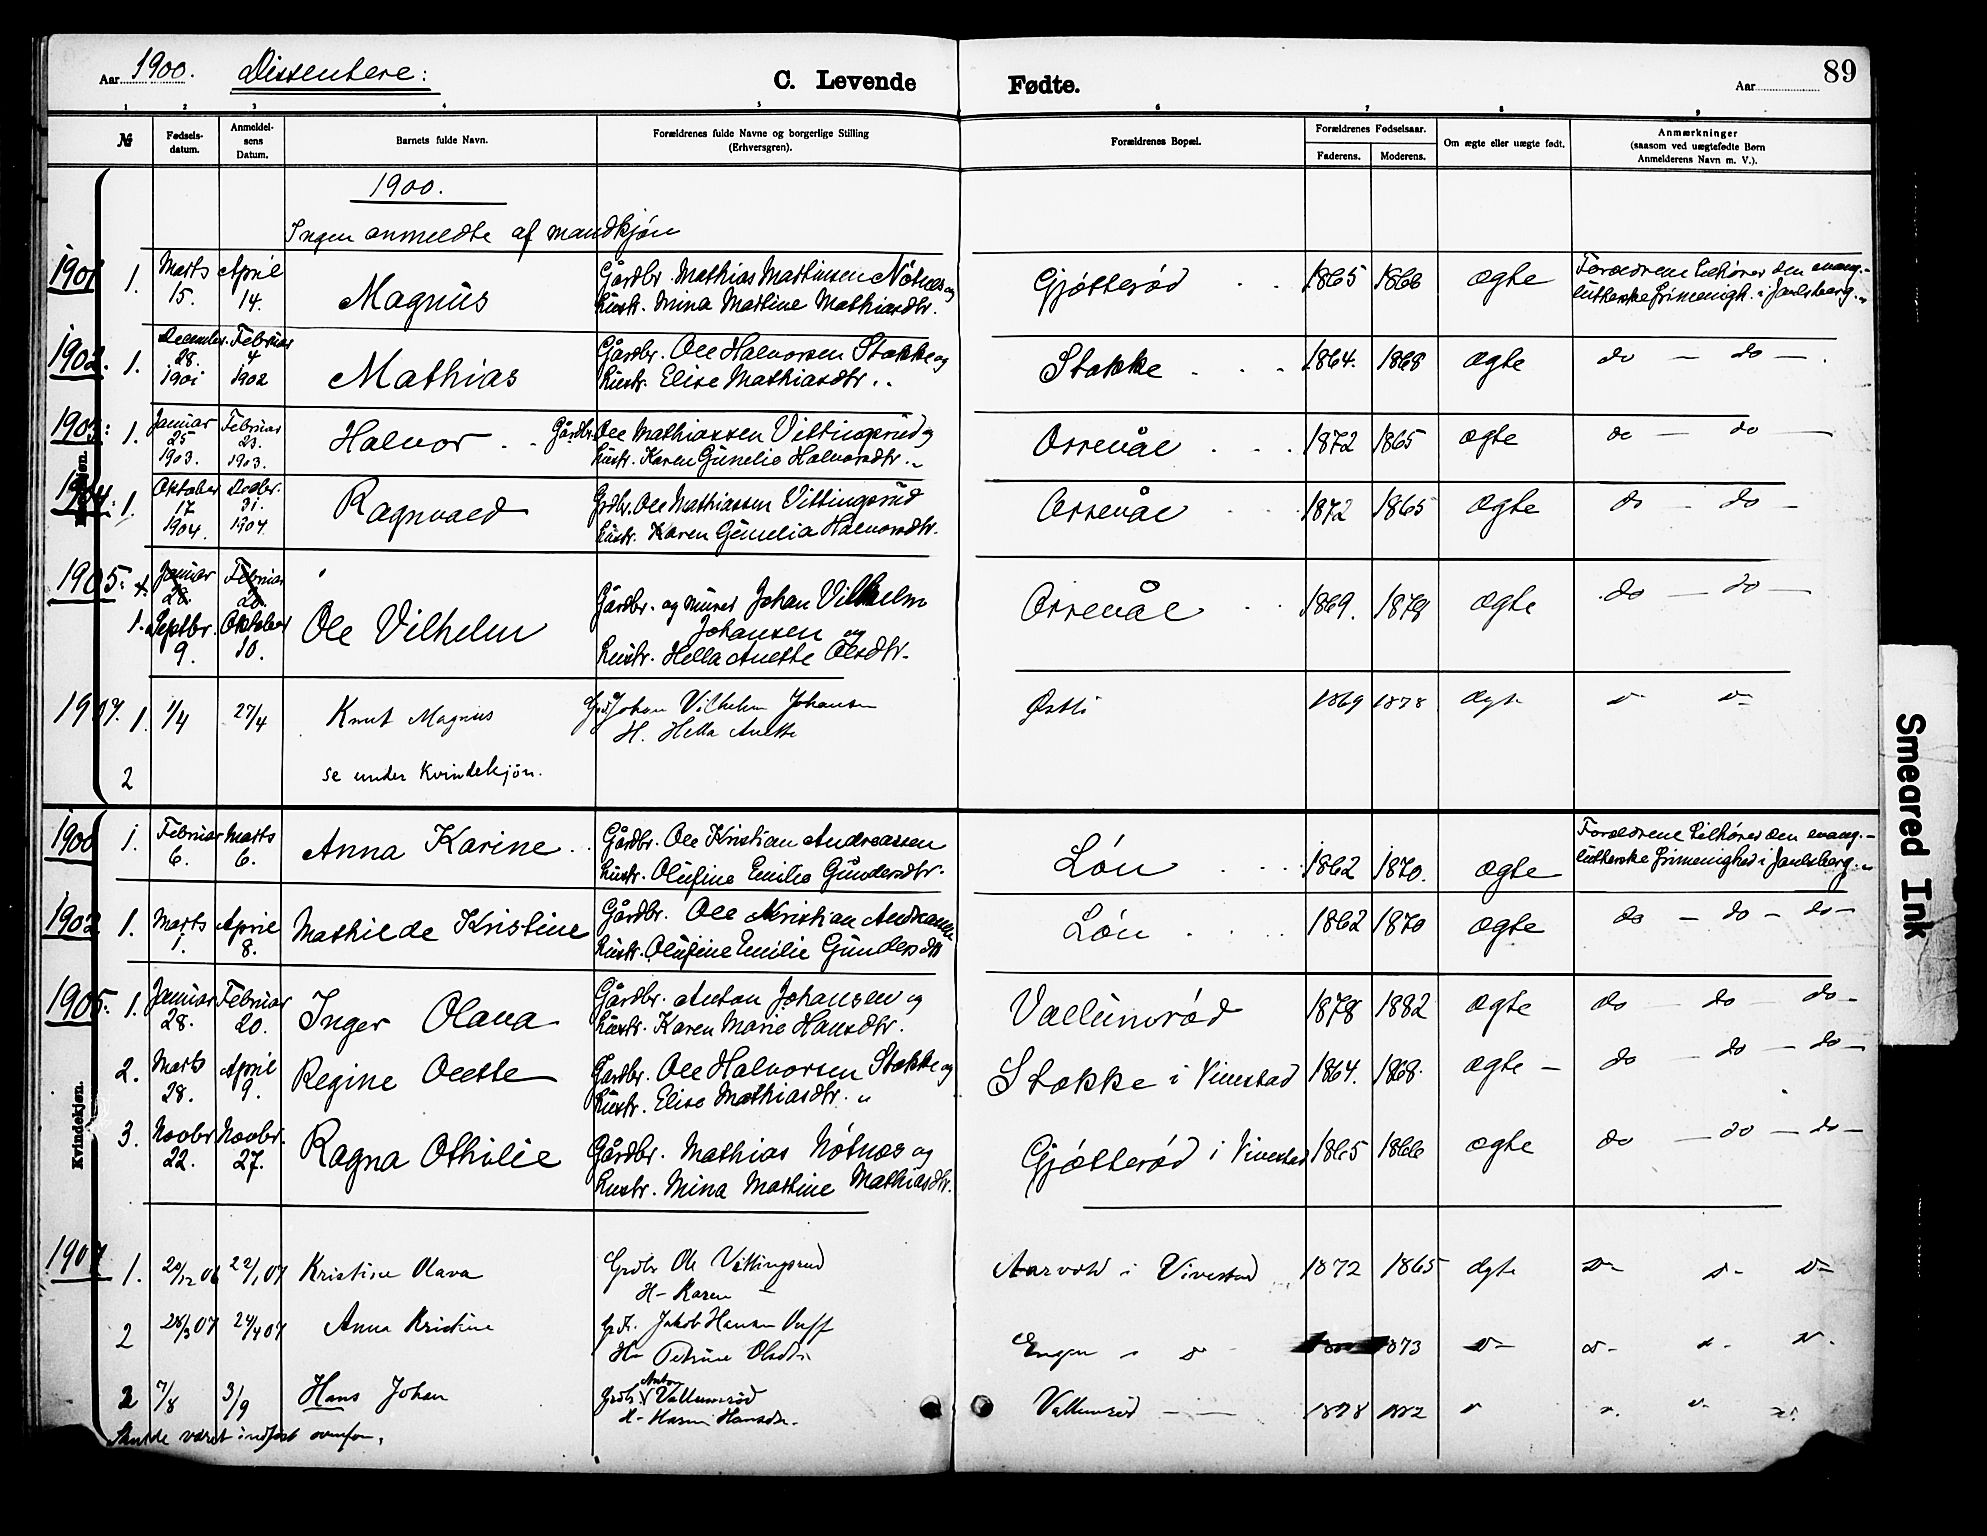 Aar 1900. Dissentere: C. Levende Fødte. Aar 89
1 2 3 4 5 6 7 8 9
№ Fødselsdatum. Anmeldelsens Datum. Barnets fulde Navn. Forældrenes fulde Navne og borgerlige Stilling (Erhversgren). Forældrenes Bopæl. Forældrenes Fødselsaar. Faderens. Moderens. Om ægte eller uægte født. Anmærkninger (saasom ved uægtefødte Børn Anmelderens Navn m. V.).
1900.
Ingen anmeldte af mandkjøn
1901 1. Marts 15. April 14. Magnus Gårdbr. Mathias Mathisen Nötnes og Gjøtterød 1865 1866 ægte Foraldrene tilhører den evang.-
Hustr. Mina Martine Mathiasdtr. lutherske frimenigh. i Jarlsberg.
1902. 1. December 28. 1901 Februar 4 1902 Mathias Gårdbr. Ole Halvorsen Stokke og Stokke 1864. 1868 ægte do — do — .
Hustr. Elise Mathiasdtr.
1903: 1. Januar 25 1903. Februar 23. 1903. Halvor Gårdbr. Ole Mathiassen Vittingsrud og Orrevål 1872 1865 ægte do — do —
Hustr. Karen Gunelia Halvorsdtr.
1904: 1. Oktober 17 1904. Decbr. 31. 1904 Ragnvald Grdbr. Ole Mathiassen Vittingsrud Orrevål 1872 1865 ægte do — do —
Hustr. Karen Gunelia Halvorsdtr.
1905: Januar 28. Februar 20.
1. Septbr. 9. Oktober 10. Ole Vilhelm Gårdbr. og murer Johan Vilhelm Johansen og Orrevål 1869. 1878 ægte do — do —
Hustr. Hella Anette Olsdtr.
1907. 1. 1/4 27/4 Knut Magnus Grd Johan Vilhelm Johansen Østli 1869 1878 ægte
H. Hella Anette
2 se under Kvindekjøn.
Kvindekjøn.
1900 1. Februar 6. Marts 6. Anna Karine Gårdbr. Ole Kristian Andreassen Løn 1862 1870. ægte Foraldrene tilhører den evang.-
Hustr. Olufine Emilie Gundersdtr. lutherske frimenighed i Jarlsberg.
1902 1. Marts 1. April 8. Mathilde Kristine Gårdbr. Ole Kristian Andreassen Løn 1862 1870 ægte do — do — do —
Hustr. Olufine Emilie Gundersdtr
1905. 1. Januar 28. Februar 20. Inger Olava Gårdbr. Anton Johansen og Vallumrød 1878 1882 ægte do — do do —
Hustr. Karen Marie Hansdtr.
2. Marts 28. April 9. Regine Olette Gårdbr. Ole Halvorsen Stokke og Stokke i Vivestad 1864. 1868. ægte — do — do — do —
Hustr. Elise Mathiasdtr. "
3. Novbr 22. Novbr. 27. Ragna Othilie Gårdbr. Mathias Nötnes og Gjøtterød i Vivestad 1865 1866 ægte do — do — do —
Hustr. Mina Martine Mathiasdtr.
1907 1. 20/12 06 22/1 07 Kristine Olava Grdbr Ole Vittingsrud Aarvold i Vivestad 1872 1865 ægte
H— Karen —
2 28/3 07 24/4 07 Anna Kristine Jakob Hansen Engen 1873
H— Petrine Olsdtr
2 7/8 3/9 Hans Johan Grdbr. Anton Vallumrød Vallumrød 1878 1882
H— Karen Hansdr.
Skulde været indført ovenfor.
Smeared Ink